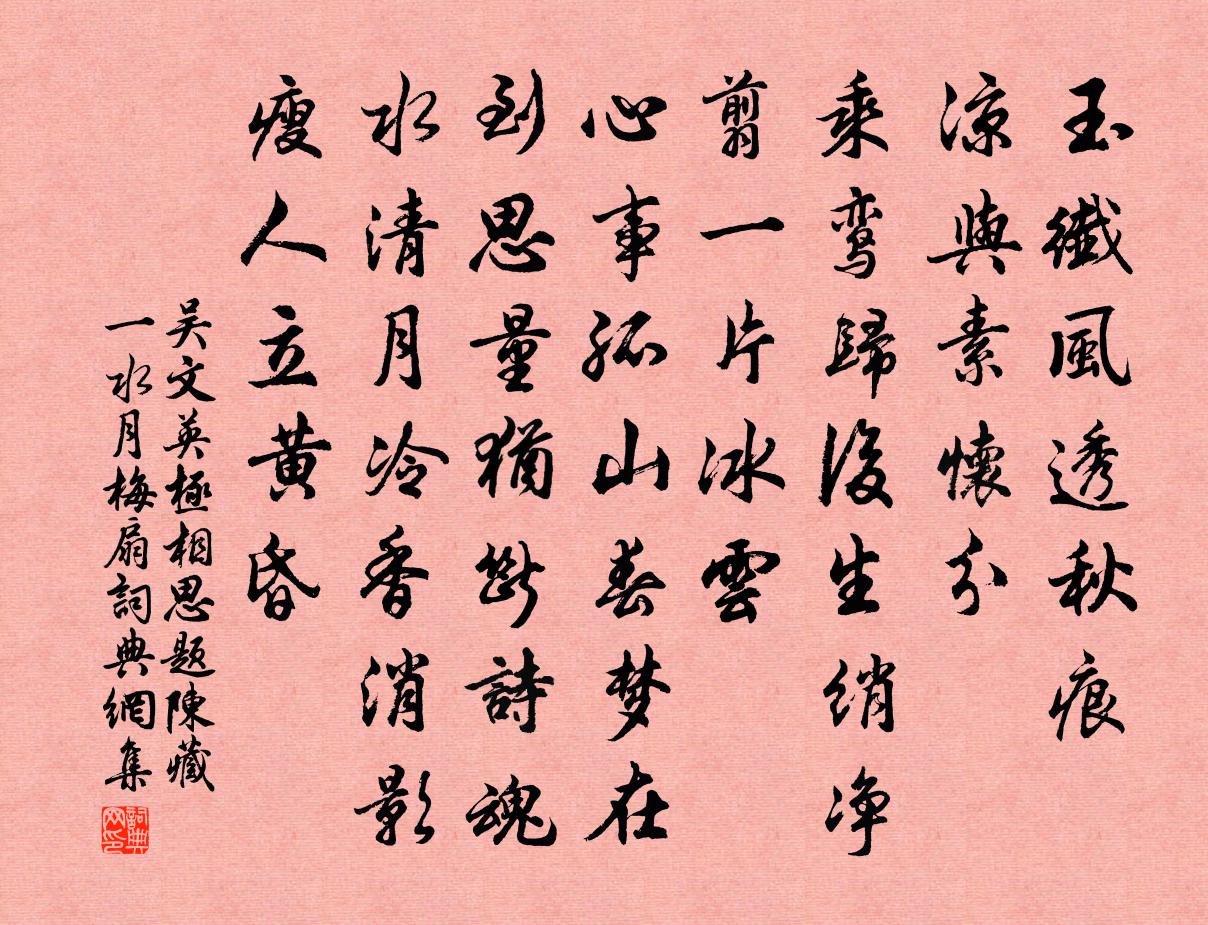 玉纖風透秋痕
凉與素懷分
乘鸾歸後生绡净
翦一片冰雲
心事孤山春梦在
到思量猶斷詩魂
水清月冷香消影
瘦人立黄昏
吴文英極相思题陳藏
一水月梅扇詞典網集
詞典网印